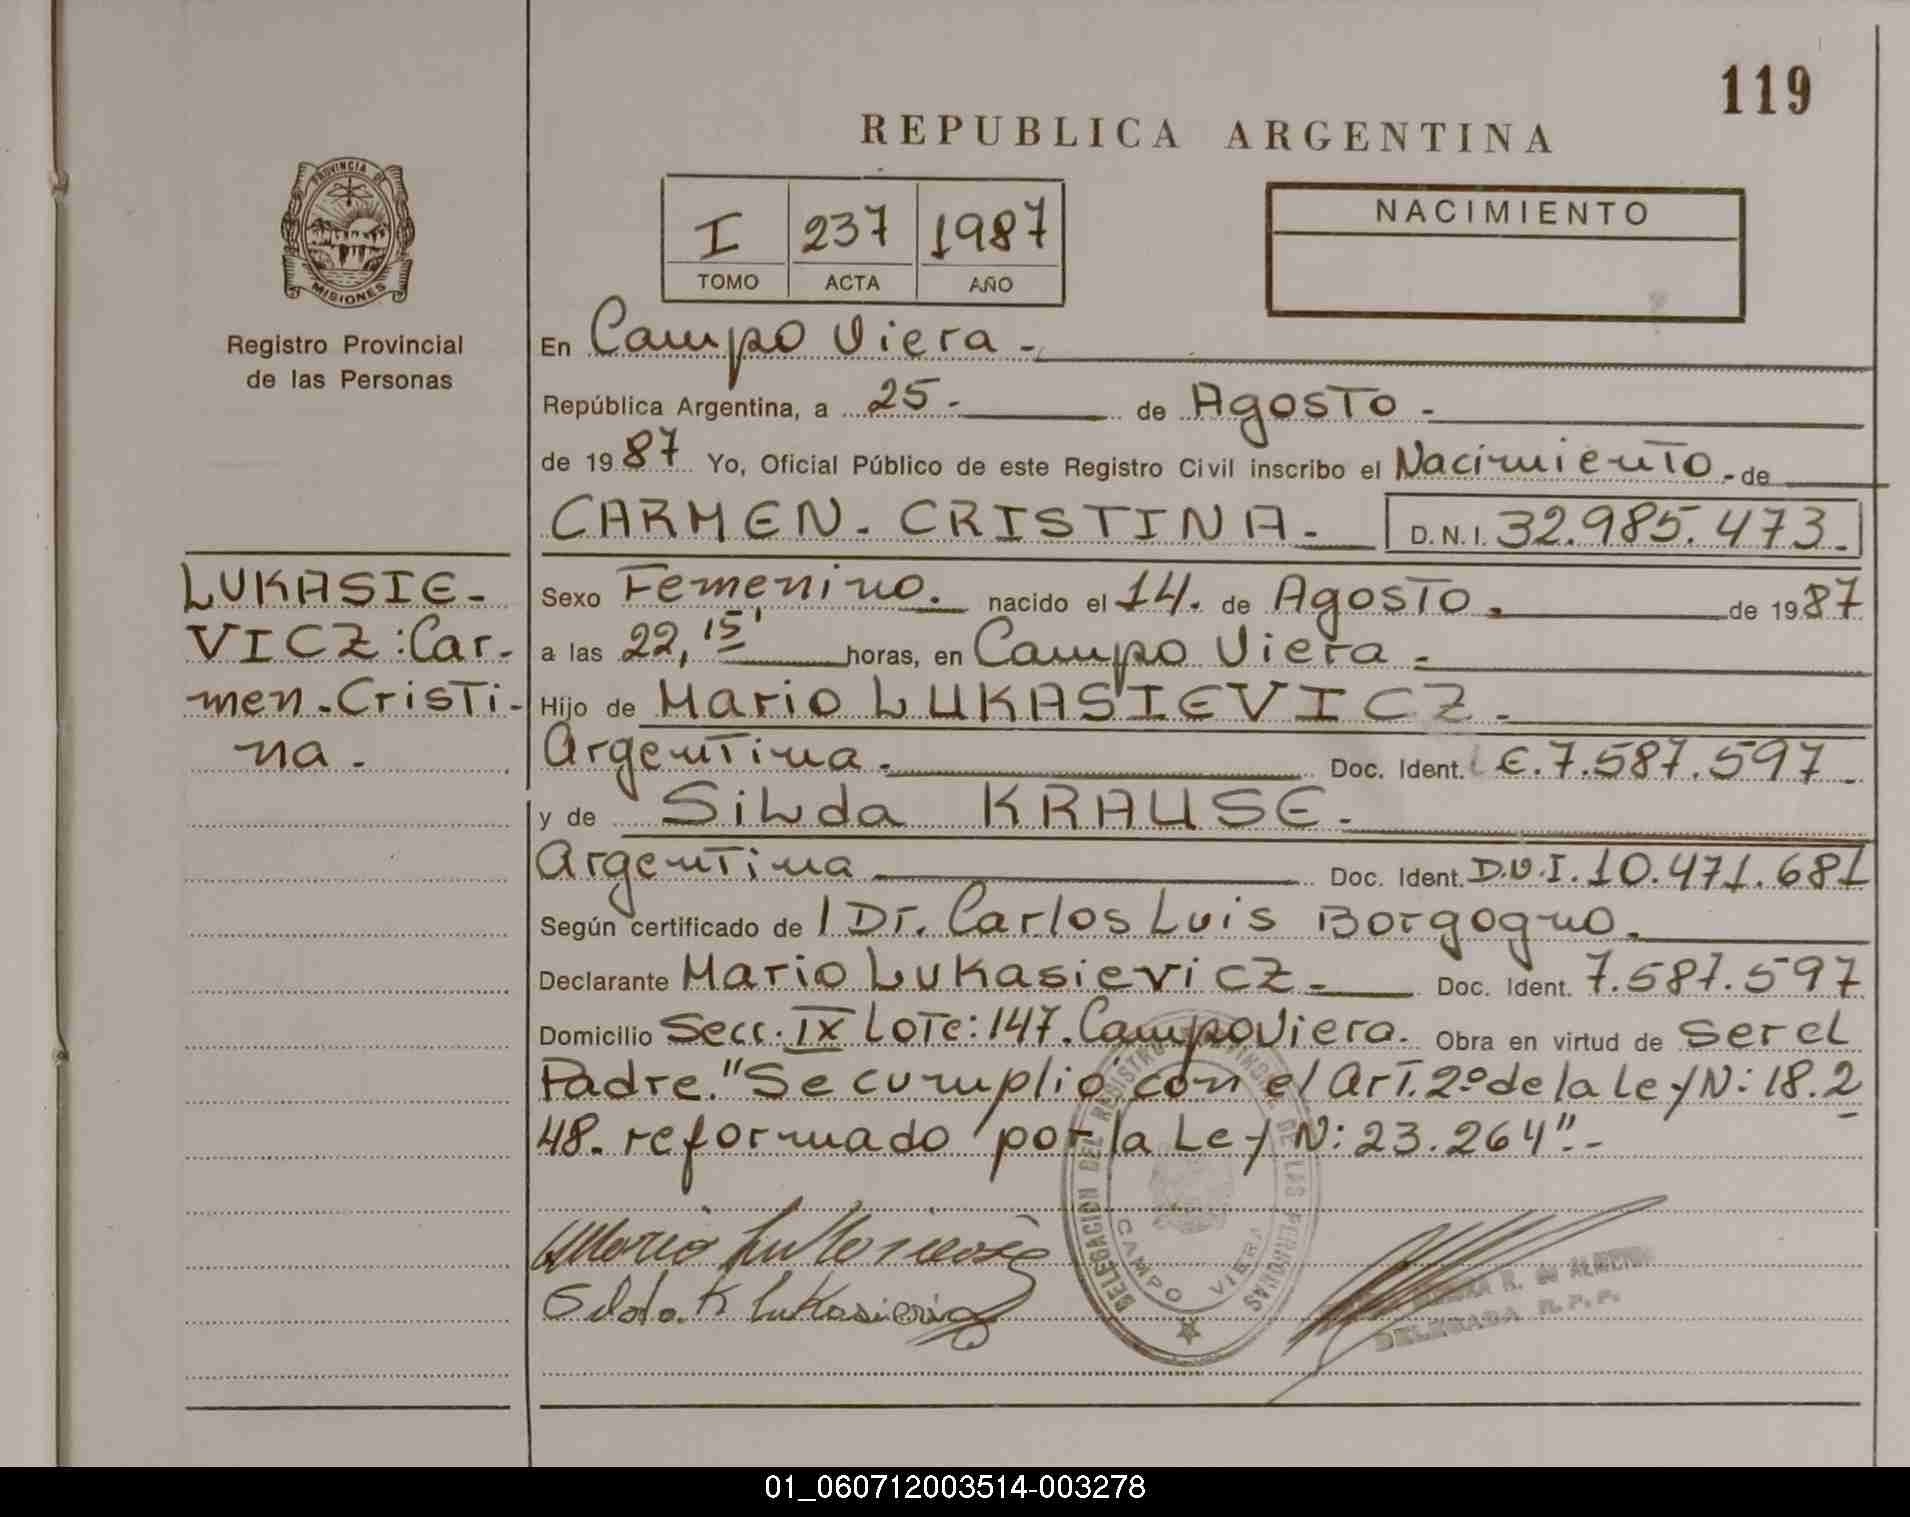 119
REPUBLICA ARGENTINA
PROVINCIA DE
MISIONES
Registro Provincial
de las Personas
I 237 1987
TOMO ACTA AÑO
NACIMIENTO
En Campo Viera -
República Argentina, a 25. de Agosto -
de 1987 Yo, Oficial Público de este Registro Civil inscribo el Nacimiento - de
CARMEN - CRISTINA - D. N. I. 32.985.473.
LUKASIE-
VICZ: Car-
men - Cristi-
na -
Sexo Femenino. nacido el 14. de Agosto. de 1987
a las 22,15' horas, en Campo Viera -
Hijo de Mario LUKASIEVICZ -
Argentina. Doc. Ident. L E. 7.587.597 -
y de Silda KRAUSE -
Argentina Doc. Ident. D.N.I. 10.471.681
Según certificado de l Dr. Carlos Luis Borgogno.
Declarante Mario Lukasievicz - Doc. Ident. 7.587.597
Domicilio Secc. IX Lote: 147. Campo Viera. Obra en virtud de ser el
Padre. "Se cumplió con el Art. 2º de la Ley N: 18.2
48. reformado por la Ley N: 23.264" -
Mario Lukasievicz
Silda K Lukasievicz
DELEGACION DEL REGISTRO PROVINCIAL DE LAS PERSONAS
CAMPO VIERA
R. de ALMEIDA
DELEGADA R. P. P.
01_060712003514-003278